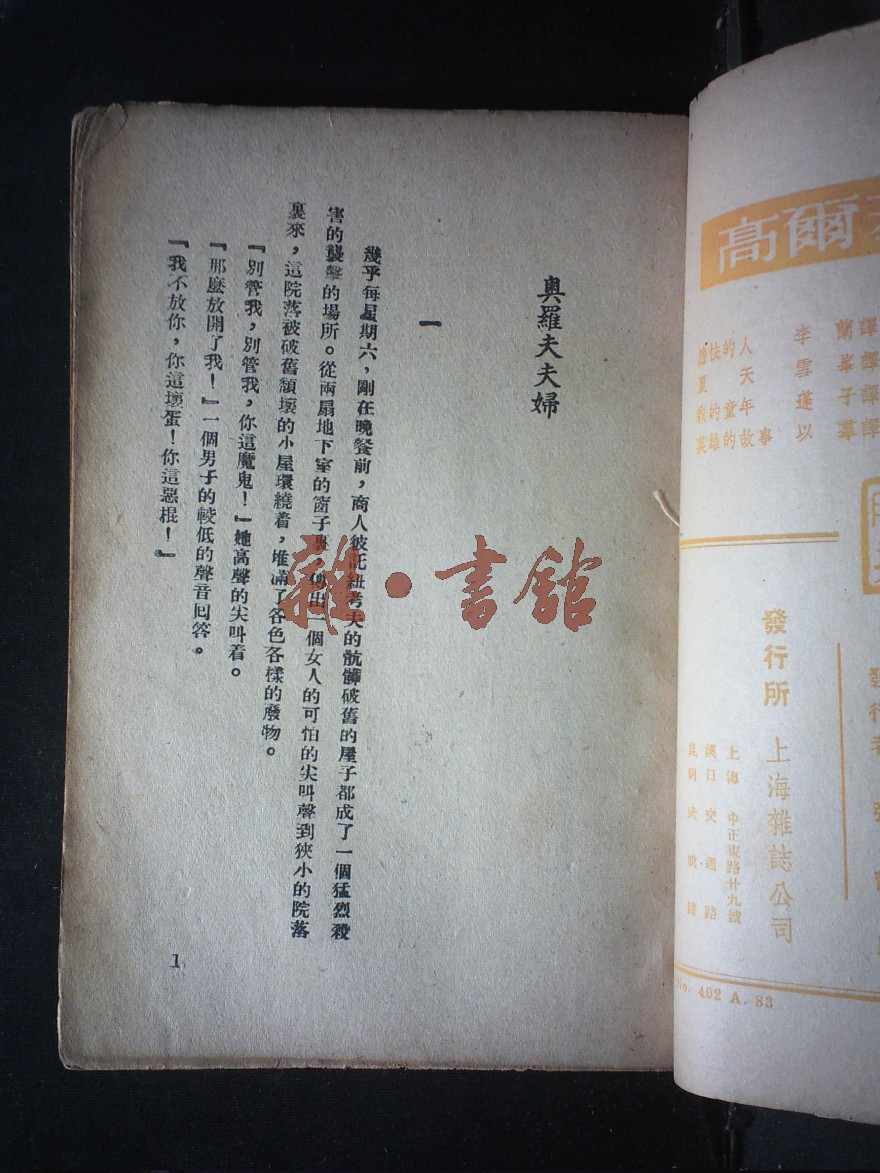 奧羅夫夫婦
一
幾乎每星期六，剛在晚餐前，商人彼託紐考夫的骯髒破舊的屋子都成了一個猛烈殺
害的襲擊的場所。從兩扇地下室的窗子裏，傳出一個女人的可怕的尖叫聲到狹小的院落
裏來，這院落被破舊頹壞的小屋環繞着，堆滿了各色各樣的廢物。
『別管我，別管我，你這魔鬼！』她高聲的尖叫着。
『那麼放開了我！』一個男子的較低的聲音回答。
『我不放你，你這壞蛋！你這惡棍！』
1
雜·書館
高爾
的人 李蘭譯
夏天 雪峯譯
我的童年 蓬子譯
英雄的故事 以羣譯
發行者
發行所 上海雜誌公司
上海 中正東路廿九號
漢口交通路
No. 402 A. 83